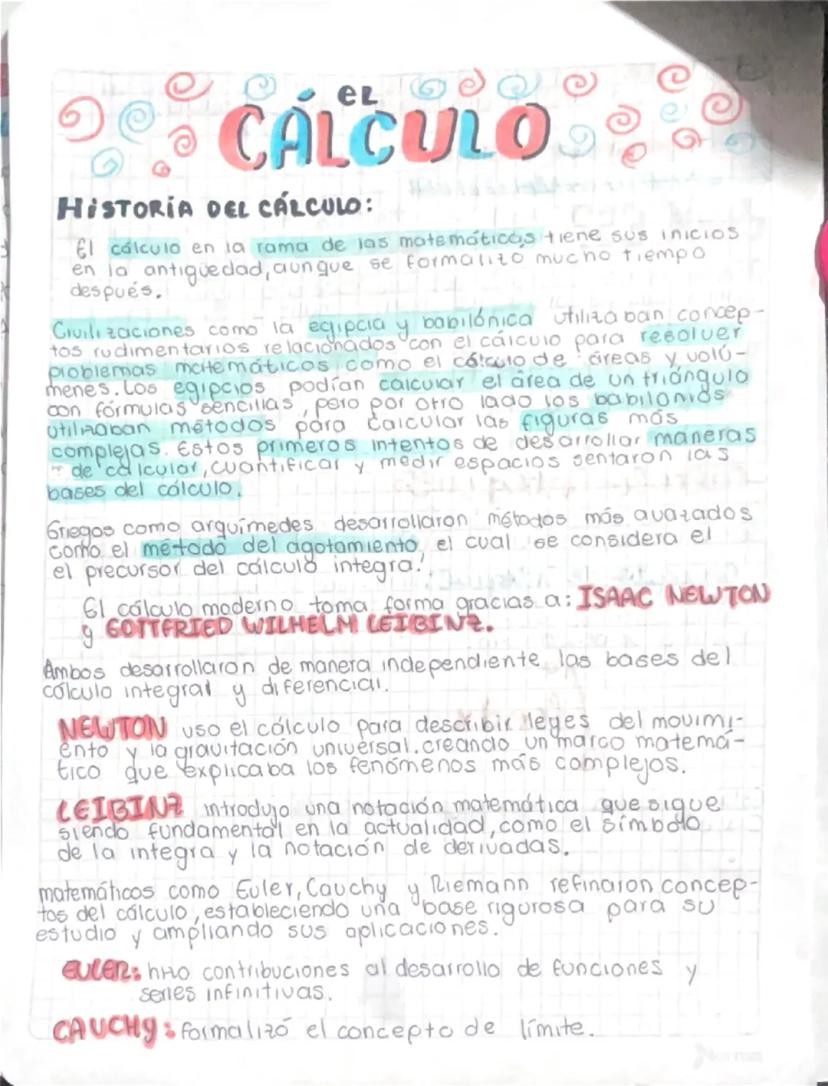 el
CÁLCULO
HISTORIA DEL CÁLCULO:
El cálculo en la rama de las matemáticas tiene sus inicios
en la antigüedad, aunque se formalizó mucho tiempo
después.
Civilizaciones como la egipcia y babilónica utilizaban concep-
tos rudimentarios relacionados con el cálculo para resolver
problemas matemáticos como el cálculo de áreas y volú-
menes. Los egipcios podían calcular el área de un triángulo
con fórmulas sencillas, pero por otro lado los babilonios
utilizaban métodos para calcular las figuras más
complejas. Estos primeros intentos de desarrollar maneras
de calcular, cuantificar y medir espacios sentaron las
bases del cálculo.
Griegos como arquímedes desarrollaron métodos más avazados
como el método del agotamiento, el cual se considera el
el precursor del cálculo integra.
El cálculo moderno toma forma gracias a: ISAAC NEWTON
y GOTTFRIED WILHELM LEIBINZ.
Ambos desarrollaron de manera independiente las bases del
cálculo integral y diferencial.
NEWTON uso el cálculo para describir leyes del movimi-
ento y la gravitación universal. creando un marco matemá-
tico que explicaba los fenómenos más complejos.
LEIBINZ introdujo una notación matemática que sigue
siendo fundamental en la actualidad, como el símbolo
de la integra y la notación de derivadas.
matemáticos como Euler, Cauchy y Riemann refinaron concep-
tos del cálculo, estableciendo una base rigurosa para su
estudio y ampliando sus aplicaciones.
EULER: hizo contribuciones al desarrollo de funciones y
series infinitivas.
CAUCHY: formalizó el concepto de límite.
Norma